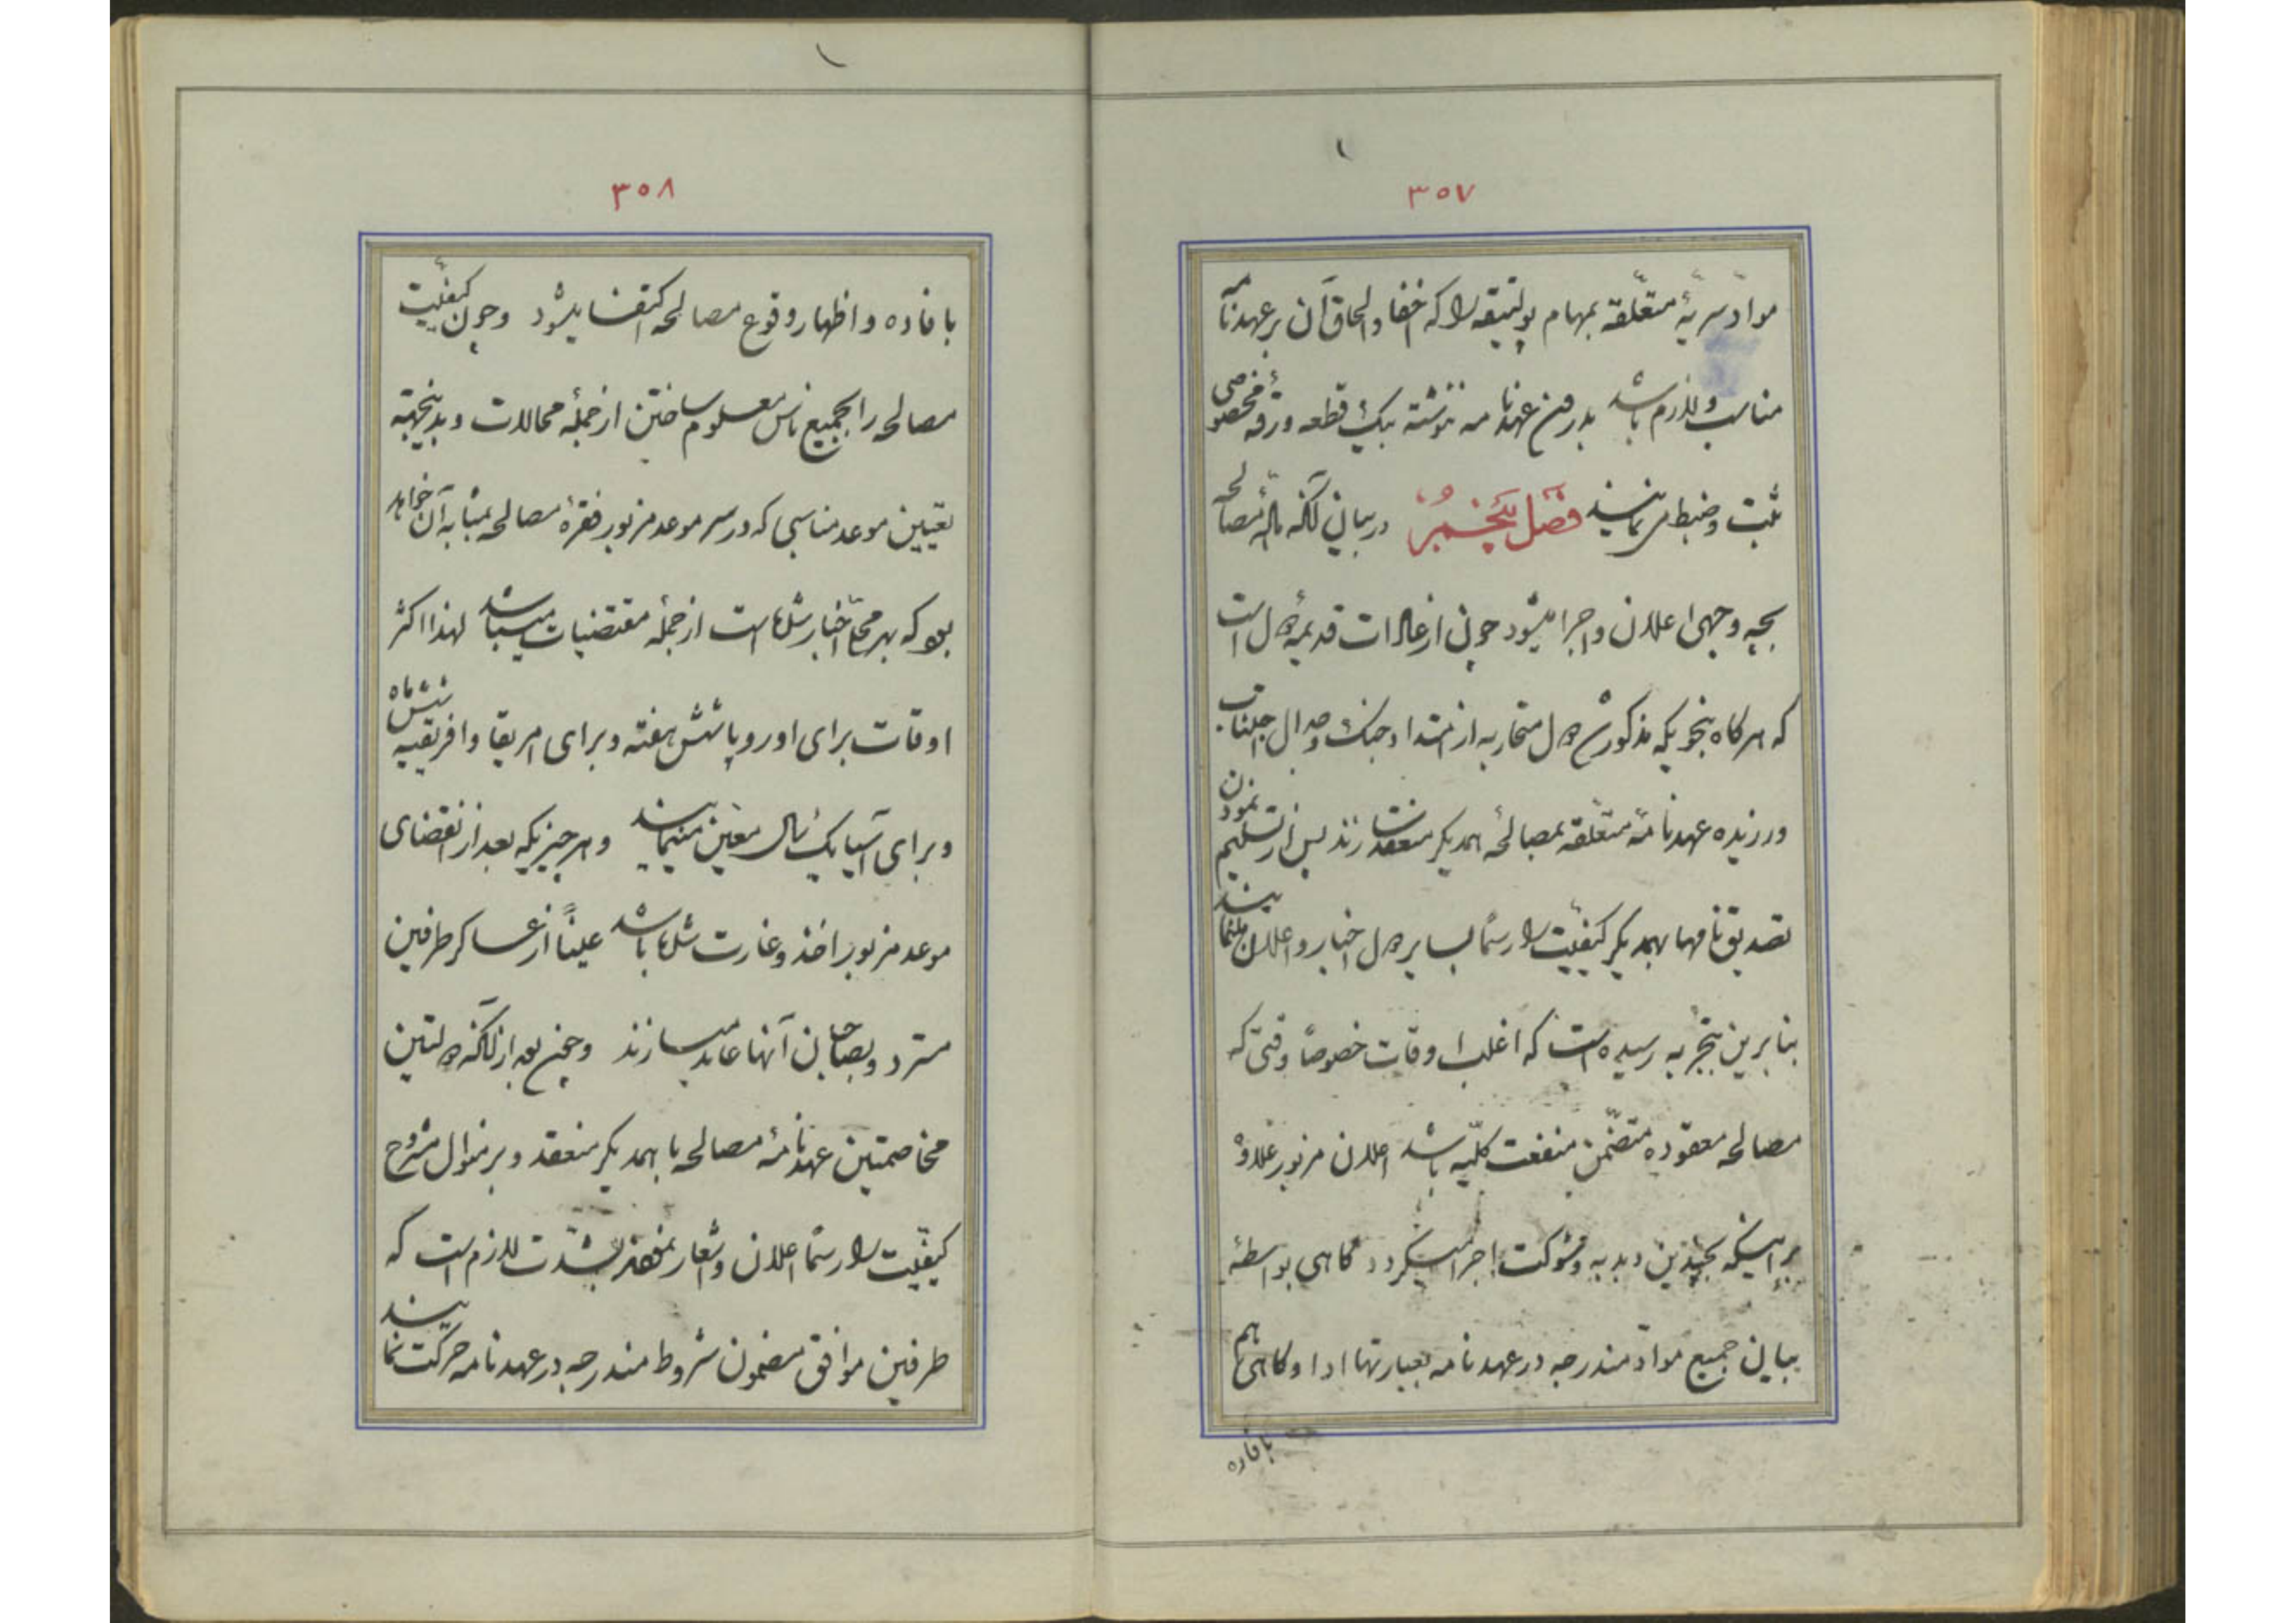 ۳۵۷
موادّ سریّهٔ متعلّقه بمهام پولتیقه را که اخفا و الحاق آن بر عهدنامه
مناسب و لازم باشد بدرون عهدنامه ننوشته بیک قطعه ورقهٔ مخصوصی
ثبت و ضبط مینمایند فصل پنجم در بیان آنکه مصالحه
بچه وجهی اعلان و اجرا میشود چون از عادات قدیمهٔ دول است
که هرگاه بنحویکه مذکور شد دول متحاربه از امتداد جنگ و جدال اجتناب
ورزیده عهدنامهٔ متعلّقه بمصالحهٔ همدیگر منعقد سازند پس از تسلیم نمودن
تصدیق نامها بهمدیگر کیفیّت را رسماً بسایر دول اخبار و اعلان مینمایند
بنابرین بتجربه رسیده است که اغلب اوقات خصوصاً وقتی که
مصالحه معقوده متضمّن منفعت کلّیه باشد اعلان مزبور علاوهٔ
براینکه بچندین دبدبه و شوکت اجرا میگردد گاهی بواسطهٔ
بیان جمیع موادّ مندرجه در عهدنامه بعبارتها ادا و گاهی هم
بافاده
۳۵۸
بافاده و اظهار وقوع مصالحه اکتفا میشود و چون کیفیّت
مصالحه را بجمیع ناس معلوم ساختن از جملهٔ محالات و بدینجهته
تعیین موعد مناسبی که در سر موعد مزبور فقرهٔ مصالحه بمثابه آن خواهد
بود که بهر محلّ اخبار شده است از جملهٔ مقتضیات میباشد لهذا اکثر
اوقات برای اوروپا شش هفته و برای امریقا و افریقیه شش ماه
و برای آسیا یک سال معین مینمایند و هر چیزیکه بعد از انقضای
موعد مزبور اخذ و غارت شده باشد عیناً از عساکر طرفین
مسترد و بصاحبان آنها عاید میسازند و همچنین بعد از آنکه دولتین
مخاصمتین عهدنامهٔ مصالحه با همدیگر منعقد و بر منوال مشروح
کیفیّت را رسماً اعلان و اشعار نمودند بشدّت لازم است که
طرفین موافق مضمون شروط مندرجه در عهدنامه حرکت نمایند